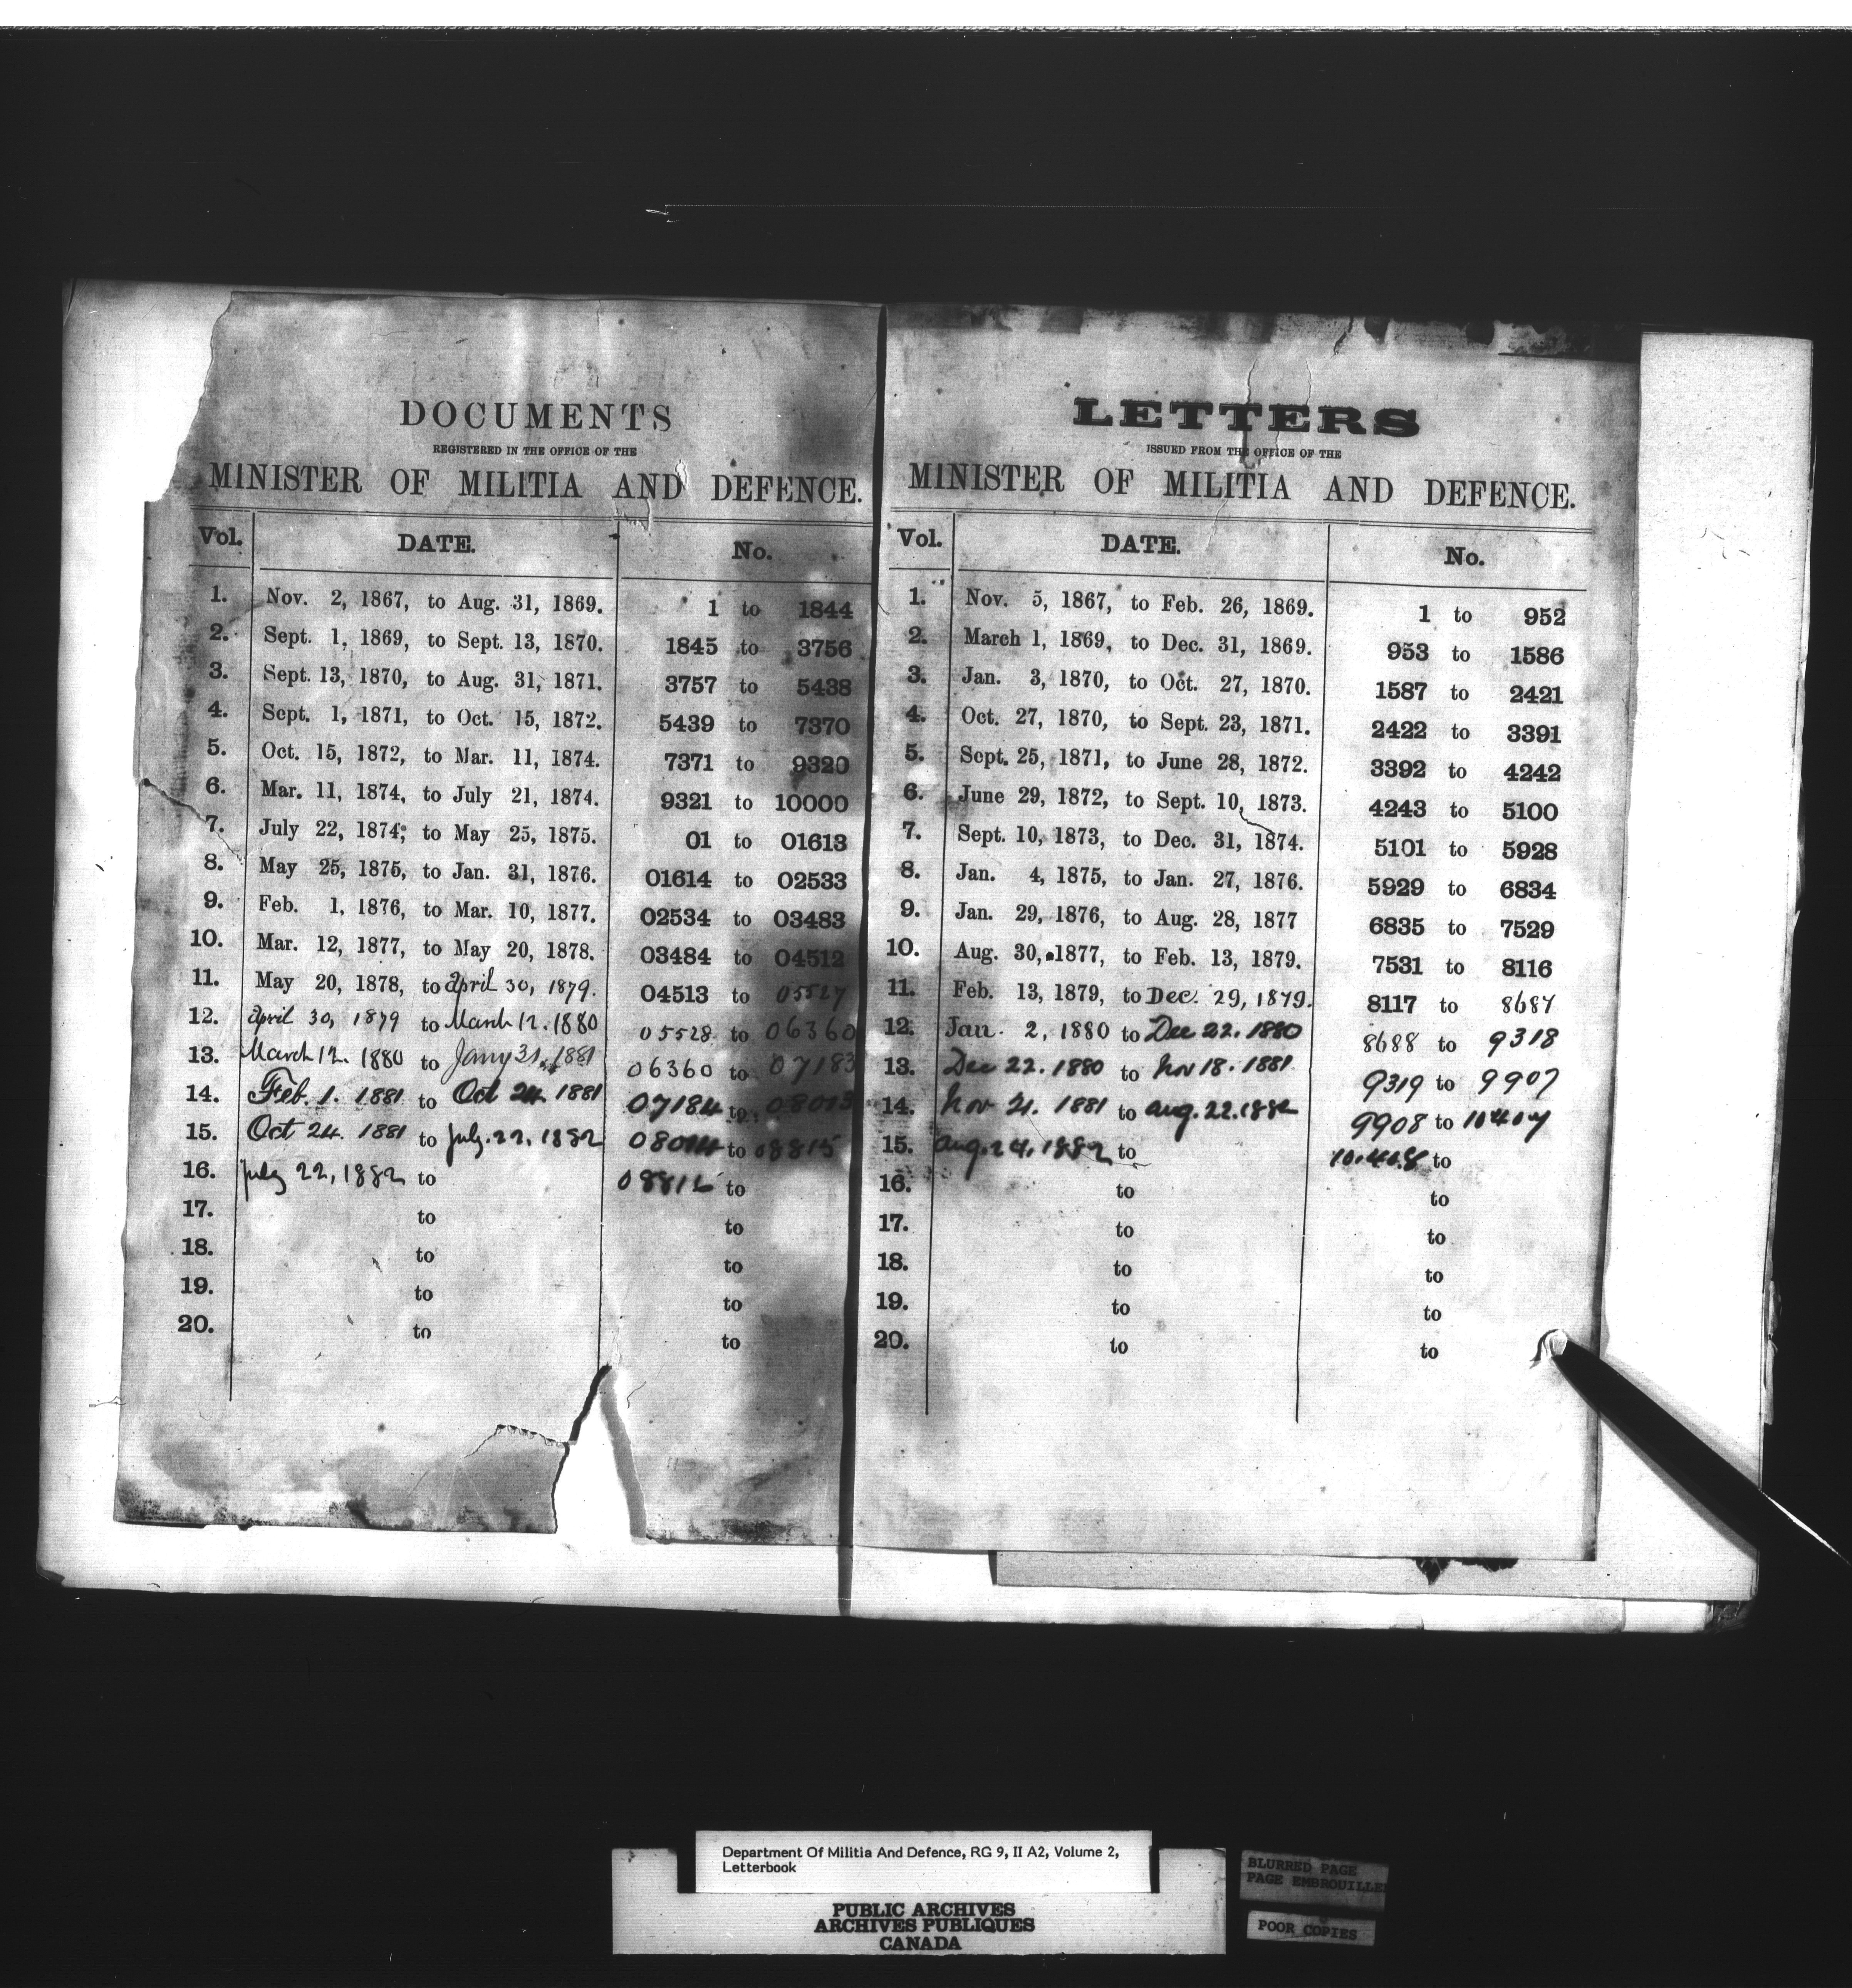 DOCUMENTS
REGISTERED IN THE OFFICE OF THE
MINISTER OF MILITIA AND DEFENCE.
Vol. DATE. No.
1. Nov. 2, 1867, to Aug. 31, 1869. 1 to 1844
2. Sept. 1, 1869, to Sept. 13, 1870. 1845 to 3756
3. Sept. 13, 1870, to Aug. 31, 1871. 3757 to 5438
4. Sept. 1, 1871, to Oct. 15, 1872. 5439 to 7370
5. Oct. 15, 1872, to Mar. 11, 1874. 7371 to 9320
6. Mar. 11, 1874, to July 21, 1874. 9321 to 10000
7. July 22, 1874, to May 25, 1875. 01 to 01613
8. May 25, 1875, to Jan. 31, 1876. 01614 to 02533
9. Feb. 1, 1876, to Mar. 10, 1877. 02534 to 03483
10. Mar. 12, 1877, to May 20, 1878. 03484 to 04512
11. May 20, 1878, to april 30, 1879. 04513 to 05527
12. april 30, 1879 to March 12. 1880 05528 to 06360
13. March 12. 1880 to Jany 31, 1881 06360 to 07183
14. Feb. 1. 1881 to Oct 24. 1881 07184 to 08013
15. Oct 24. 1881 to July. 22, 1882 08014 to 08815
16. July 22, 1882 to 08816 to
17. to to
18. to to
19. to to
20. to to
LETTERS
ISSUED FROM THE OFFICE OF THE
MINISTER OF MILITIA AND DEFENCE.
Vol. DATE. No.
1. Nov. 5, 1867, to Feb. 26, 1869. 1 to 952
2. March 1, 1869, to Dec. 31, 1869. 953 to 1586
3. Jan. 3, 1870, to Oct. 27, 1870. 1587 to 2421
4. Oct. 27, 1870, to Sept. 23, 1871. 2422 to 3391
5. Sept. 25, 1871, to June 28, 1872. 3392 to 4242
6. June 29, 1872, to Sept. 10, 1873. 4243 to 5100
7. Sept. 10, 1873, to Dec. 31, 1874. 5101 to 5928
8. Jan. 4, 1875, to Jan. 27, 1876. 5929 to 6834
9. Jan. 29, 1876, to Aug. 28, 1877 6835 to 7529
10. Aug. 30, 1877, to Feb. 13, 1879. 7531 to 8116
11. Feb. 13, 1879, to Dec. 29, 1879. 8117 to 8687
12. Jan. 2, 1880 to Dec 22. 1880 8688 to 9318
13. Dec 22. 1880 to Nov 18. 1881 9319 to 9907
14. Nov 21. 1881 to aug. 22. 1882 9908 to 10407
15. aug. 24. 1882 to 10.408 to
16. to to
17. to to
18. to to
19. to to
20. to to
Department Of Militia And Defence, RG 9, II A2, Volume 2,
Letterbook
PUBLIC ARCHIVES
ARCHIVES PUBLIQUES
CANADA
BLURRED PAGE
PAGE EMBROUILLE
POOR COPIES